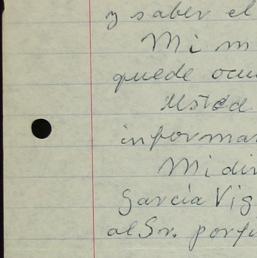 y saber el
Mi m
quede ocu
Usted
informa
Mi di
García Vig
al Sr. porfi